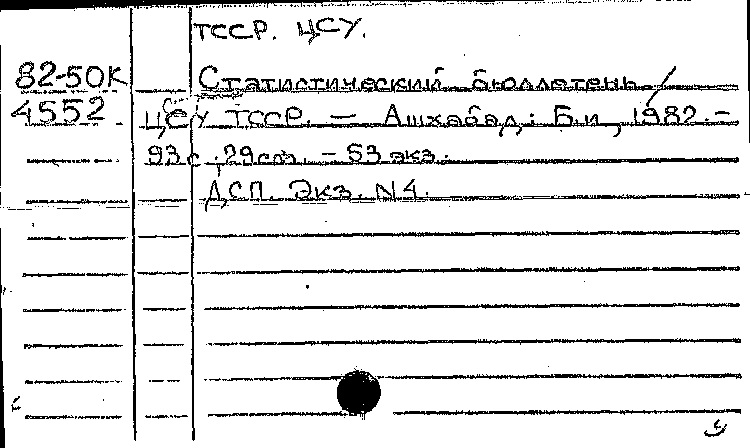 ТССР. ЦСУ.
82-50К Статистический бюллетень /
4552 ЦСУ ТССР. — Ашхабад: Б.и, 1982. –
93 с.; 29 см. – 53 экз.
ДСП. Экз. N4.